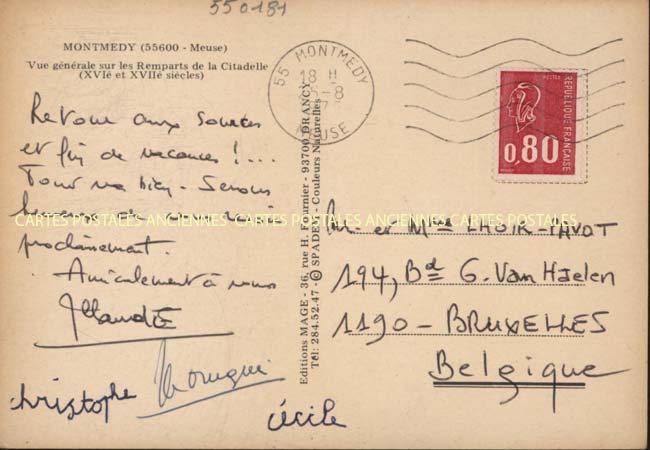 550181
MONTMEDY (55600 - Meuse)
Vue générale sur les Remparts de la Citadelle
(XVIé et XVIIé siécles)
55 MONTMEDY
18 H
-8
MEUSE
POSTES
REPUBLIQUE FRANÇAISE
0,80
Retour aux sources
et fin de vacances !...
Tout va bien - Serons
prochainement.
Amicalement à vous
Christophe
Cécile
Editions MAGE - 36, rue H. Fournier - 93700 DRANCY
Tél: 284.52.47 - © SPADEM - Couleurs Naturelles
CARTES POSTALES ANCIENNES CARTES POSTALES ANCIENNES CARTES POSTALES
M. et Mme
194, Bd G. Van Haelen
1190 - BRUXELLES
Belgique